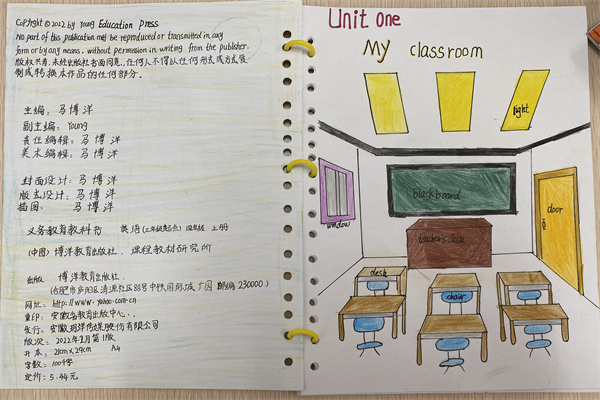 Copyright © 2022 by Young Education Press
No part of this publication may be reproduced or transmitted in any
form or by any means, without permission in writing from the publisher.
版权共有,未经出版社书面同意,任何人不得以任何形式或方式复
制或转换本作品的任何部分.
主编: 马博洋
副主编: Young
责任编辑: 马博洋
美术编辑: 马博洋
封面设计: 马博洋
版式设计: 马博洋
插图: 马博洋
义务教育教科书 英语(三年级起点) 四年级 上册
(中国) 博洋教育出版社. 课程教材研究所
出版 博洋教育出版社
(合肥市庐阳区清源社区88号中铁国际城广园 邮编 230000)
网址: http://www.yahoo.com.cn
重印: 安徽省教育出版中心.
发行: 安徽玥洋传媒股份有限公司
版次: 2022年1月第1版
开本: 21cm×29cm A4
字数: 100千字
定价: 5.44元
Unit one
My classroom
light
blackboard
window
door
teacher's desk
desk
chair